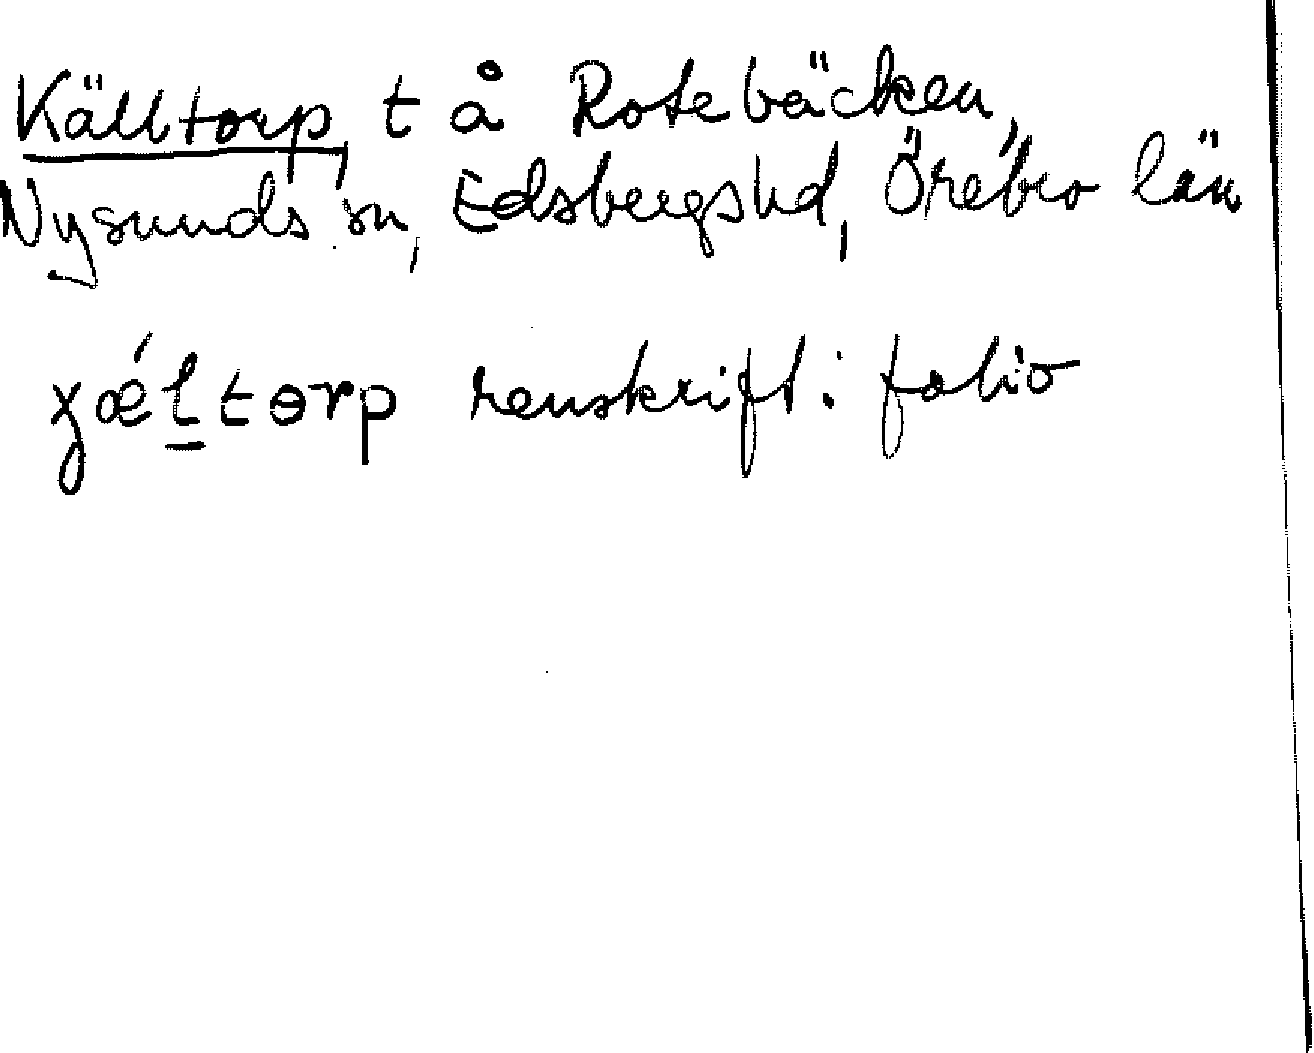 Källtorp, t å Rotebäcken,
Nysunds sn, Edsbergs hd, Örebro län
χǽltɵrp renskrift i folio